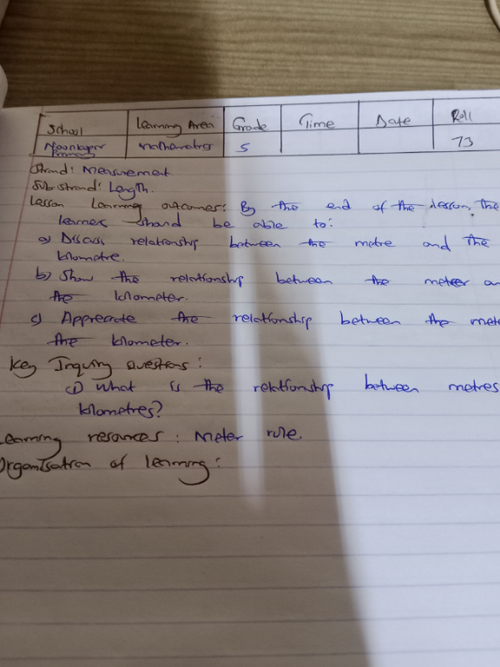 School Learning Area Grade Time Date Roll
Primary Mathematics 5 73
Strand: Measurement
Sub strand: Length.
Lesson Learning outcomes: By the end of the lesson, the
learner should be able to:
a) Discuss relationship between the metre and the
kilometre.
b) Show the relationship between the meter
the kilometer.
c) Appreciate the relationship between the
the kilometer.
Key Inquiry questions:
i) What is the relationship between metres
kilometres?
Learning resources: Meter rule.
Organisation of learning: